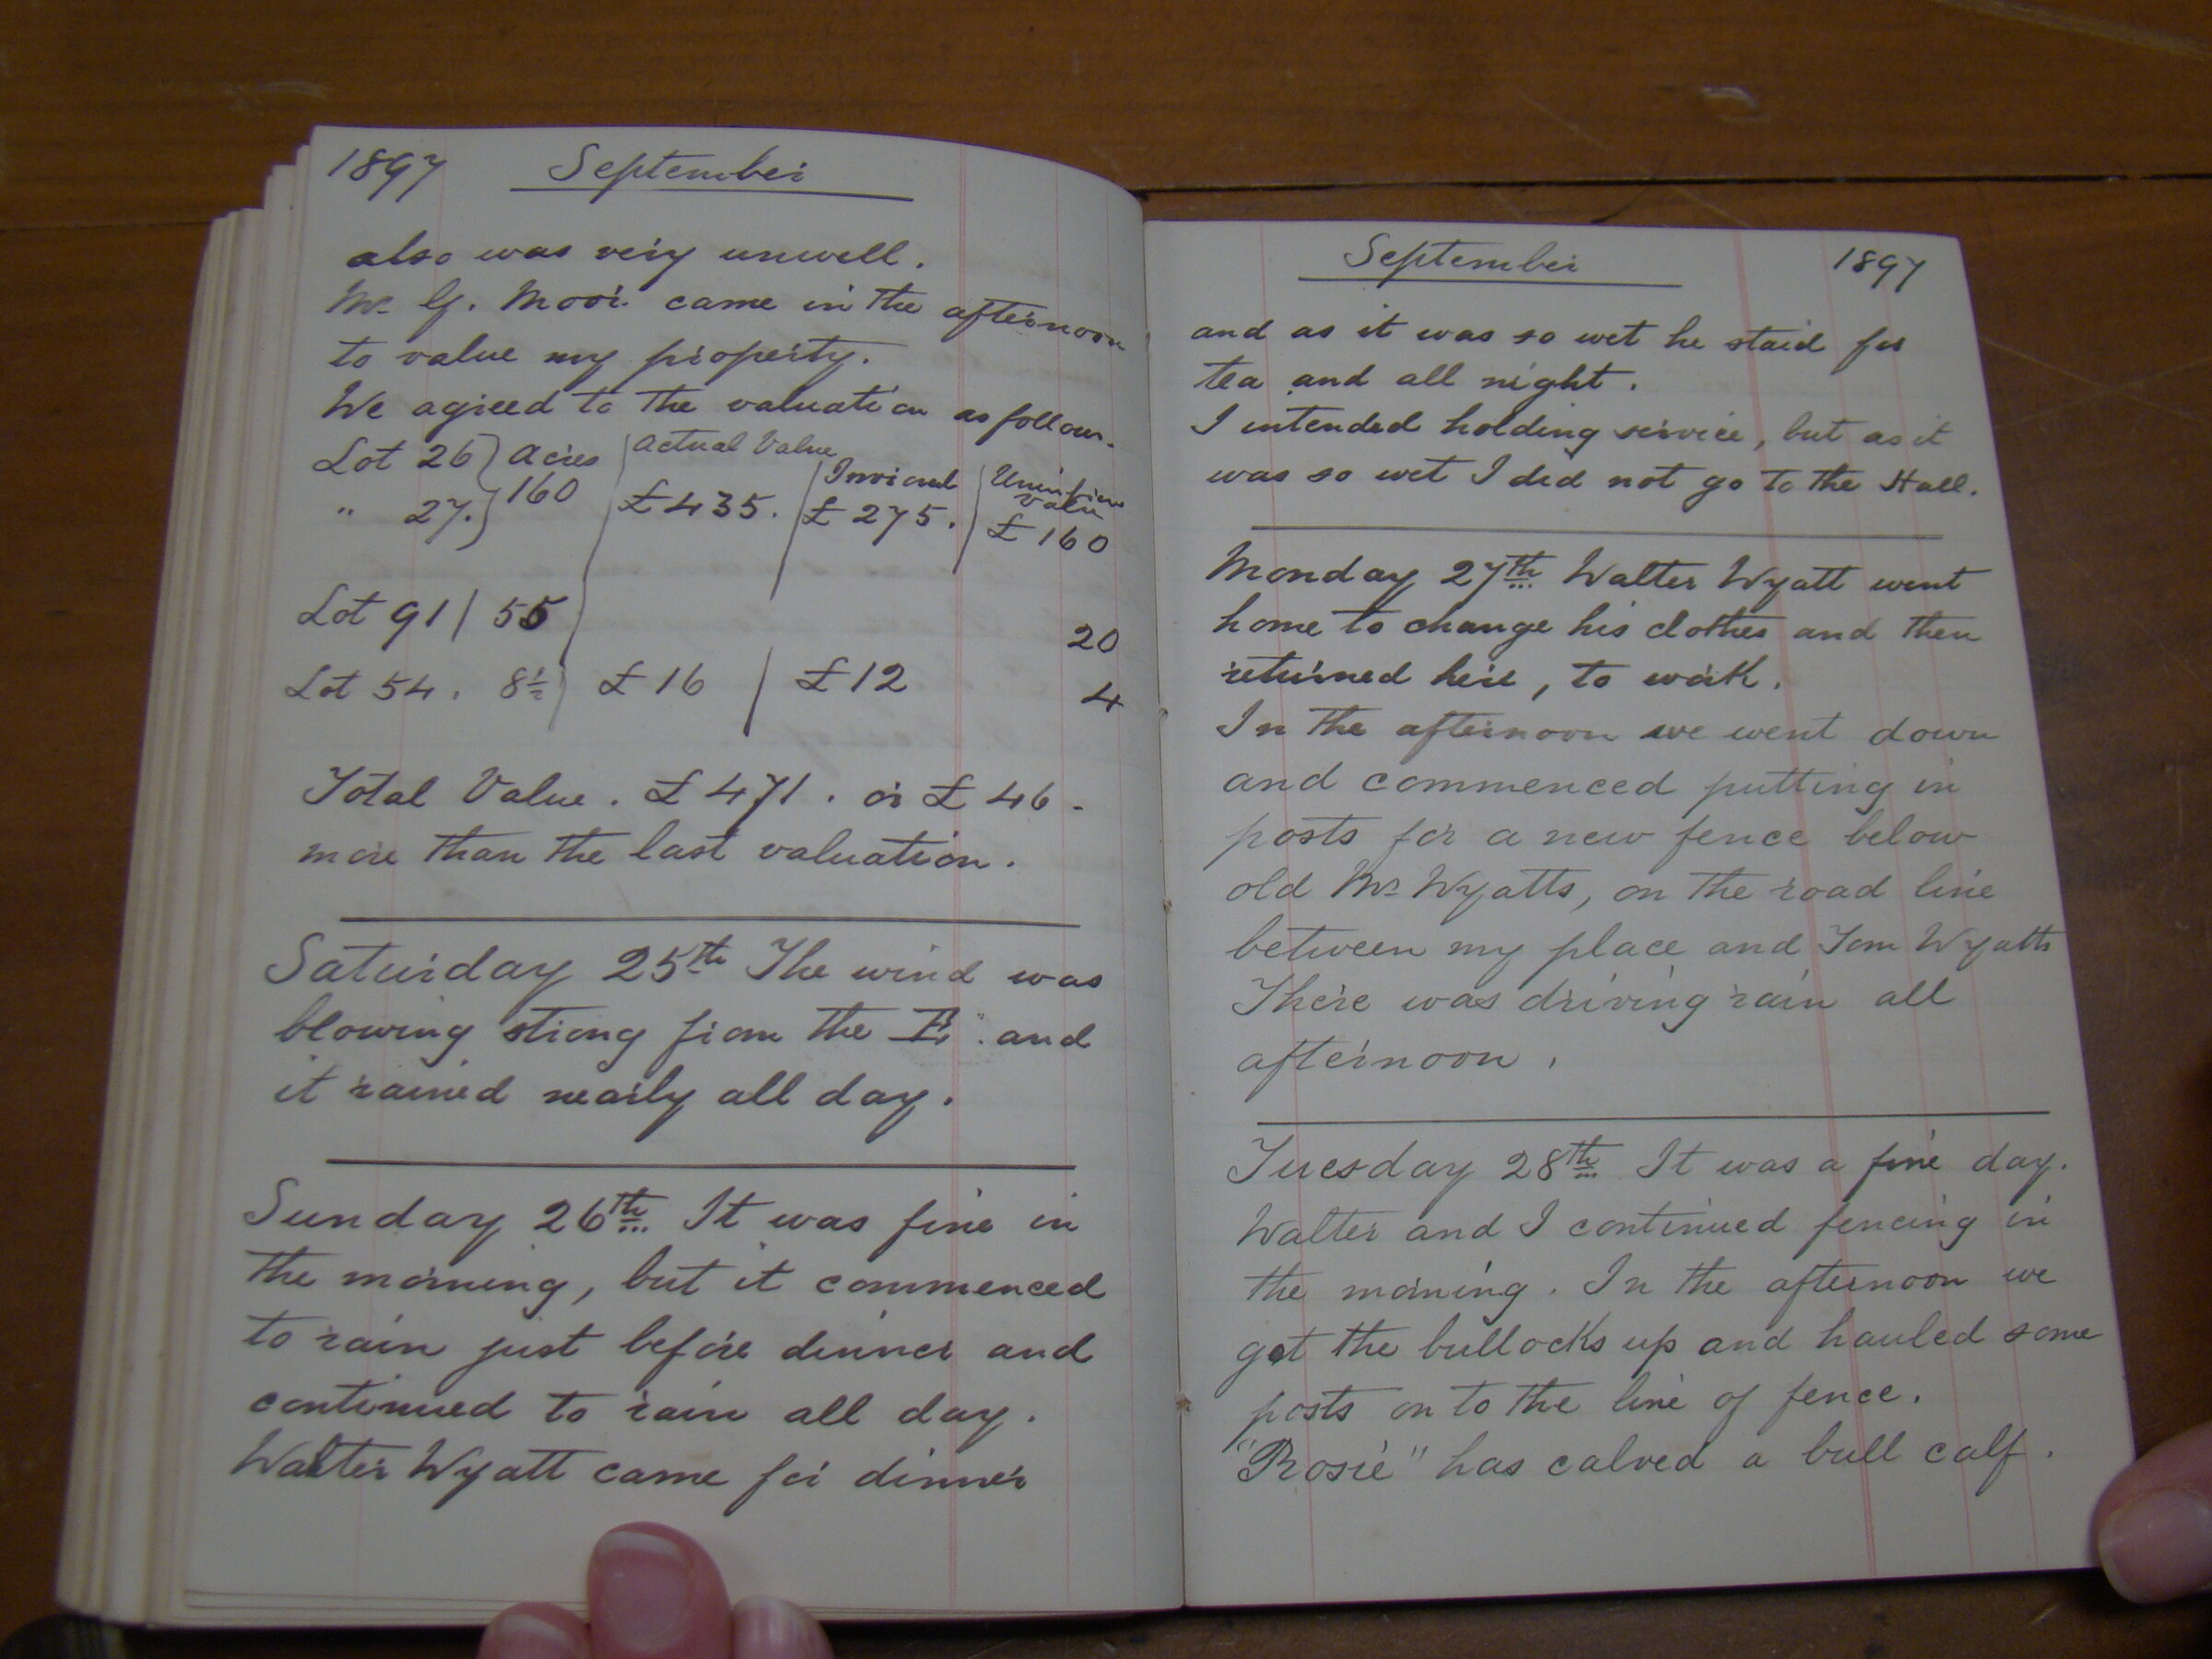 1897 September
also was very unwell.
Mr. G. Moor came in the afternoon
to value my property.
We agreed to the valuation as follows.
Lot 26 } Acres | Actual Value | Improved | Unimprov Value
" 27. } 160 | £435. | £275. | £160
Lot 91 | 55 | 20
Lot 54. 8½ | £16 | £12 4
Total Value. £471. or £46.
more than the last valuation.
Saturday 25th The wind was
blowing strong from the E. and
it rained nearly all day.
Sunday 26th. It was fine in
the morning, but it commenced
to rain just before dinner and
continued to rain all day.
Walter Wyatt came for dinner
September 1897
and as it was so wet he staid for
tea and all night.
I intended holding service, but as it
was so wet I did not go to the Hall.
Monday 27th Walter Wyatt went
home to change his clothes and then
returned here, to work.
In the afternoon we went down
and commenced putting in
posts for a new fence below
old Mr Wyatts, on the road line
between my place and Tom Wyatts
There was driving rain all
afternoon.
Tuesday 28th It was a fine day.
Walter and I continued fencing in
the morning. In the afternoon we
got the bullocks up and hauled some
posts on to the line of fence.
"Rosie" has calved a bull calf.